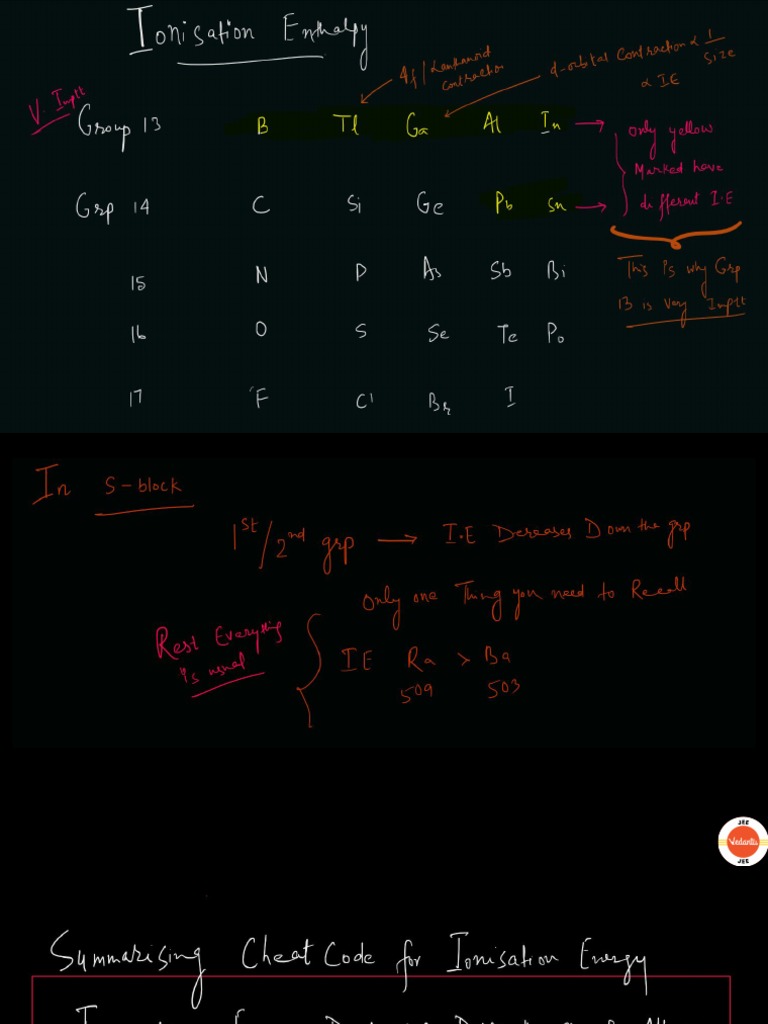 Ionisation Enthalpy
4f / Lanthanoid contraction
d-orbital Contraction ∝ 1/Size
∝ IE
V. Imptt
Group 13 B Tl Ga Al In →
Only yellow
Marked have
different I.E
Grp 14 C Si Ge Pb Sn →
This is why Grp
13 is very Imptt
15 N P As Sb Bi
16 O S Se Te Po
17 F Cl Br I
In S-block
1st/2nd grp → I.E Decreases Down the grp
Only one Thing you need to Recall
Rest Everything
is usual
IE Ra > Ba
509 503
JEE
Vedantu
JEE
Summarising Cheat Code for Ionisation Energy